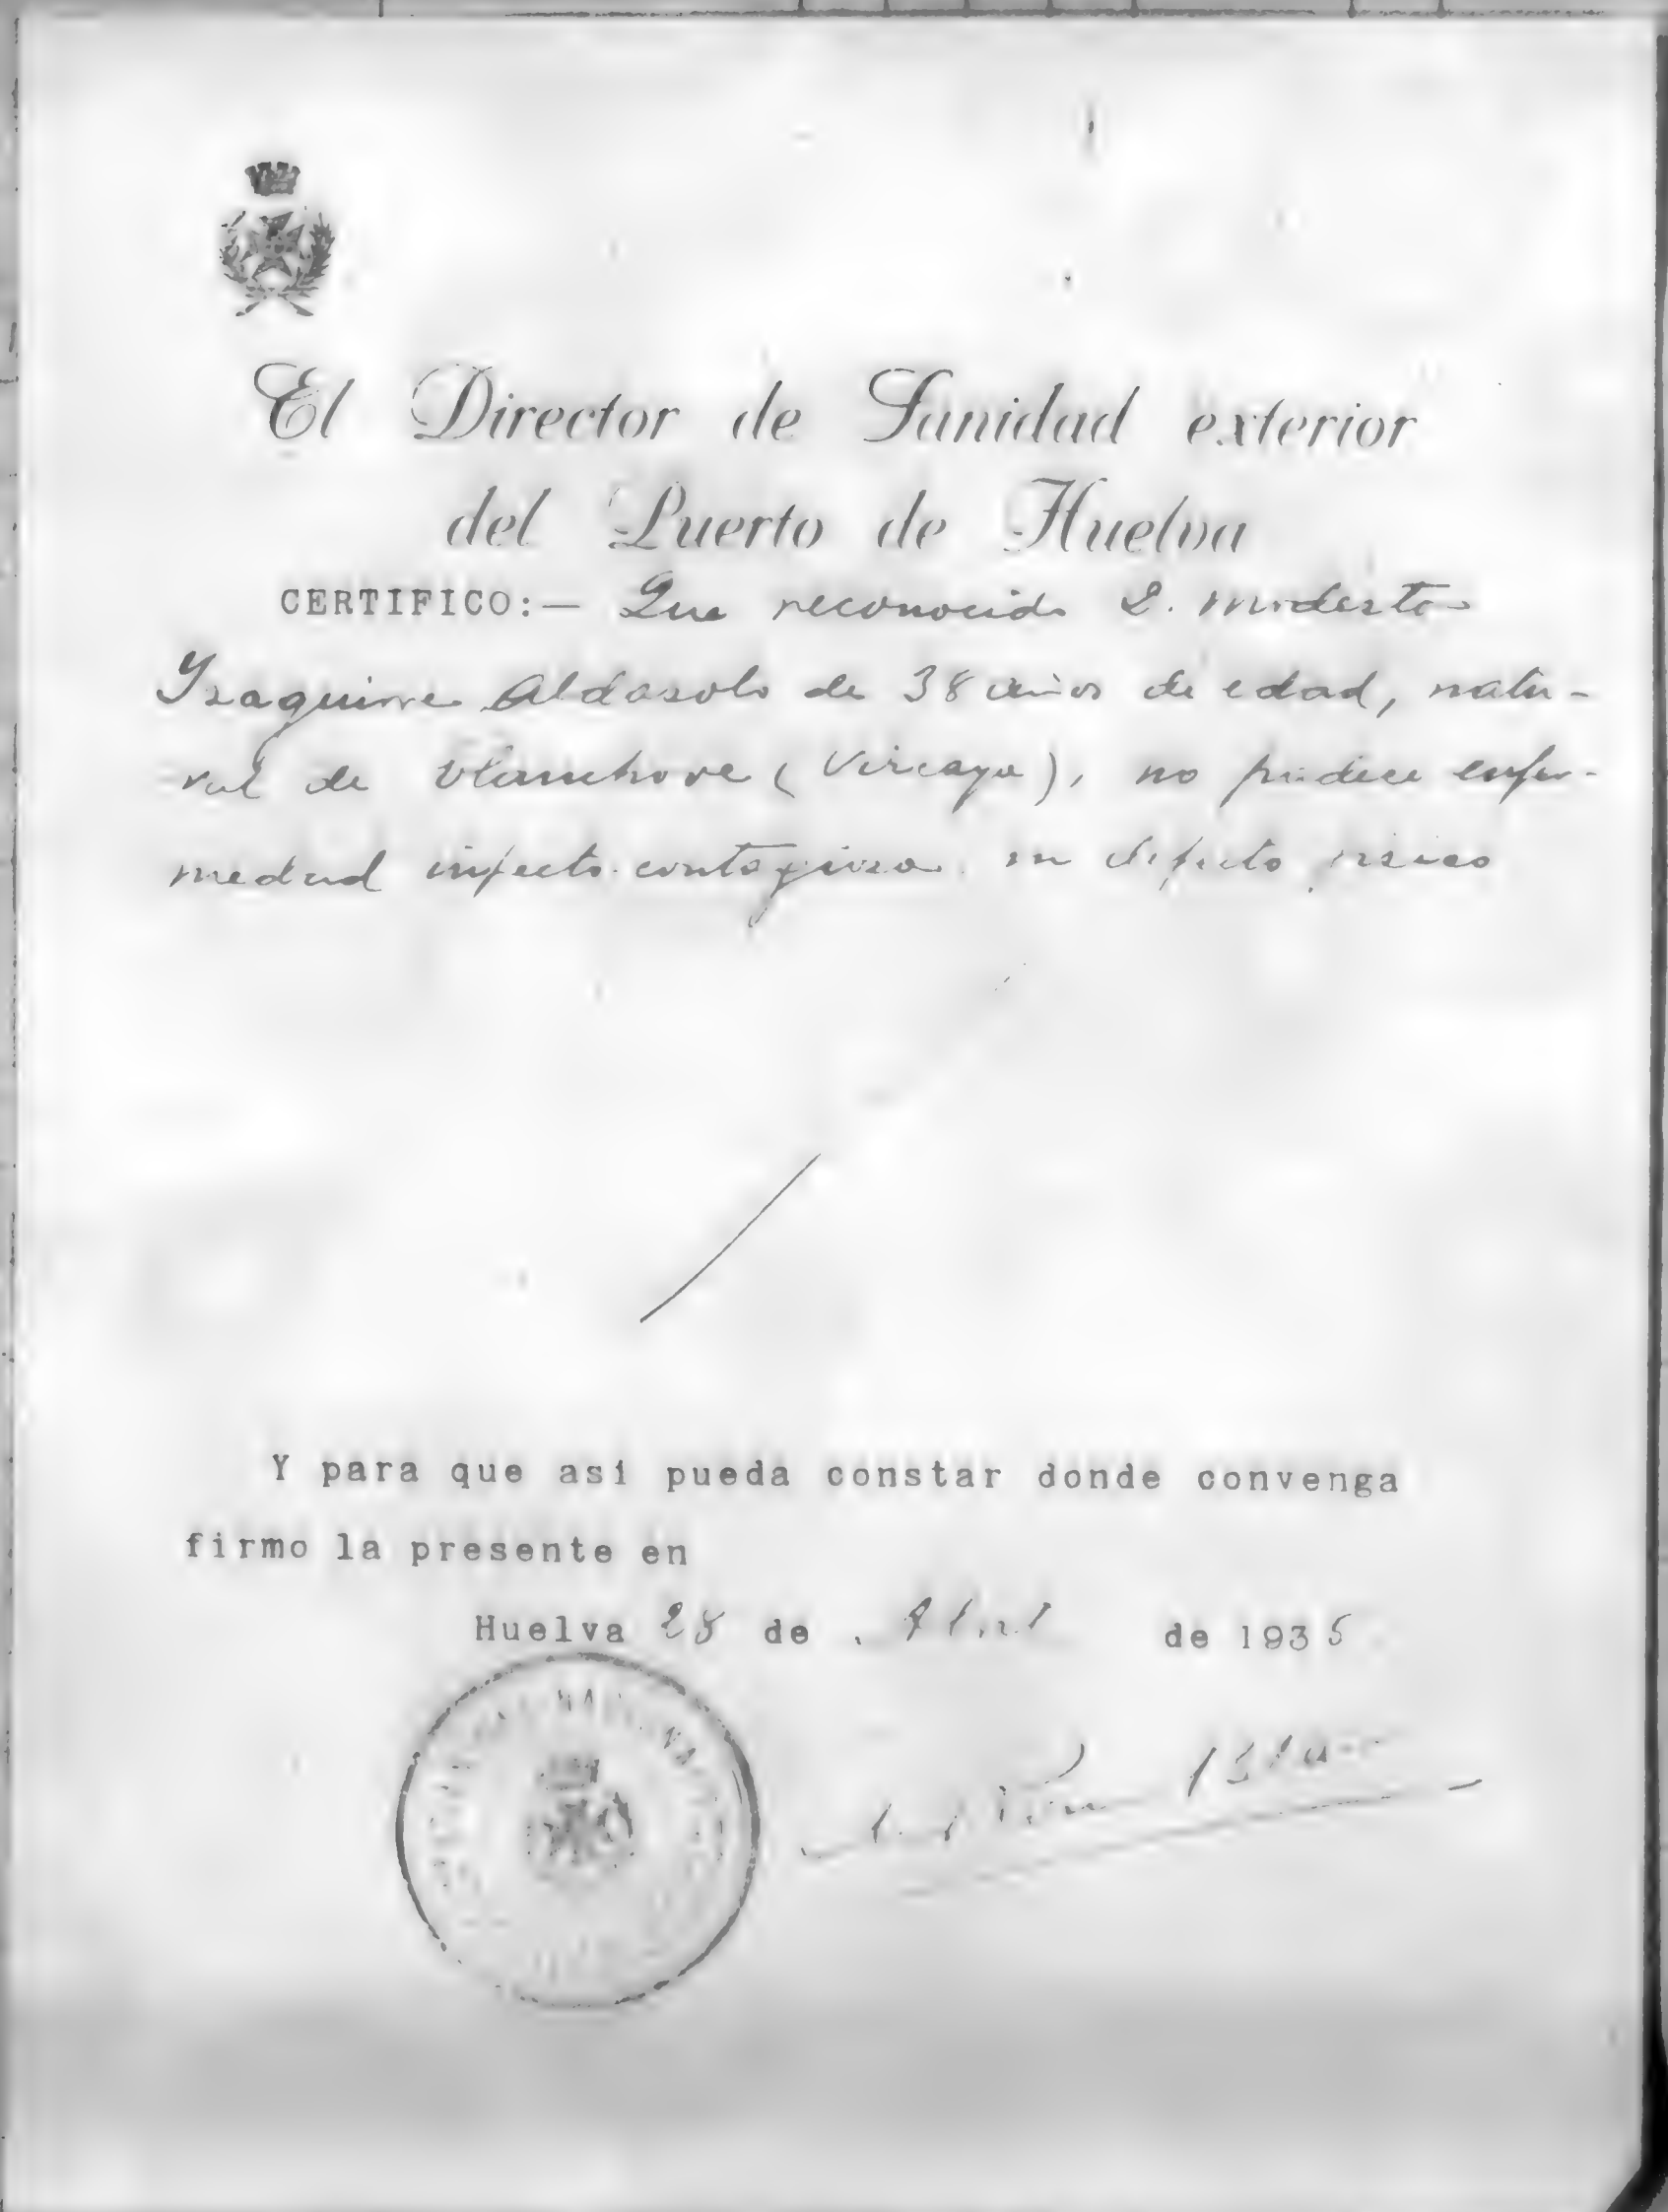 El Director de Sanidad exterior
del Puerto de Huelva
CERTIFICO:— Que reconocido D. Modesto
Yzaguirre Aldasolo de 38 años de edad, natu-
ral de Elanchove (Vizcaya), no padece enfer-
medad infecto-contagiosa ni defecto físico
Y para que asi pueda constar donde convenga
firmo la presente en
Huelva 28 de Abril de 1935